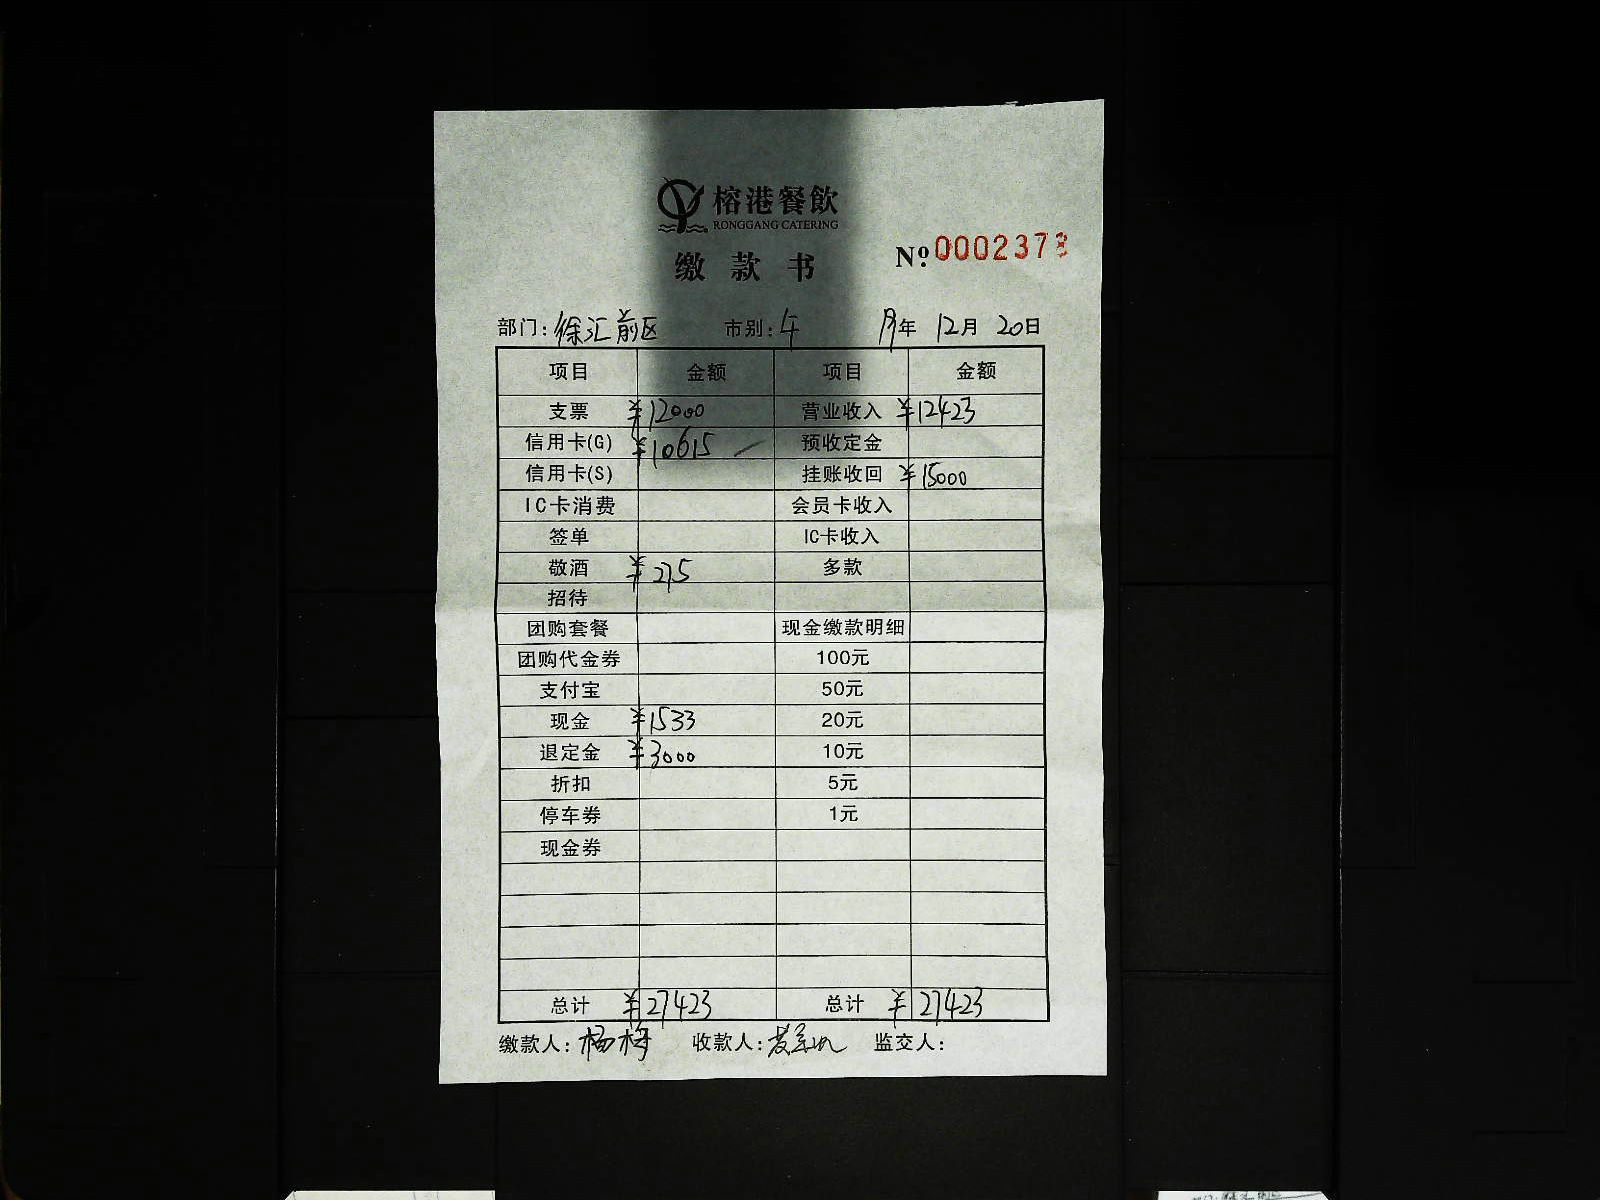 榕港餐飲
RONGGANG CATERING
缴款书
Nº 0002378
部门: 徐汇前区 市别: 午 年 12月 20日
项目 金额 项目 金额
支票 ¥12000 营业收入 ¥12423
信用卡(G) ¥10615 预收定金
信用卡(S) 挂账收回 ¥15000
IC卡消费 会员卡收入
签单 IC卡收入
敬酒 ¥275 多款
招待
团购套餐 现金缴款明细
团购代金券 100元
支付宝 50元
现金 ¥1533 20元
退定金 ¥3000 10元
折扣 5元
停车券 1元
现金券
总计 ¥27423 总计 ¥27423
缴款人: 杨梅 收款人: 监交人: